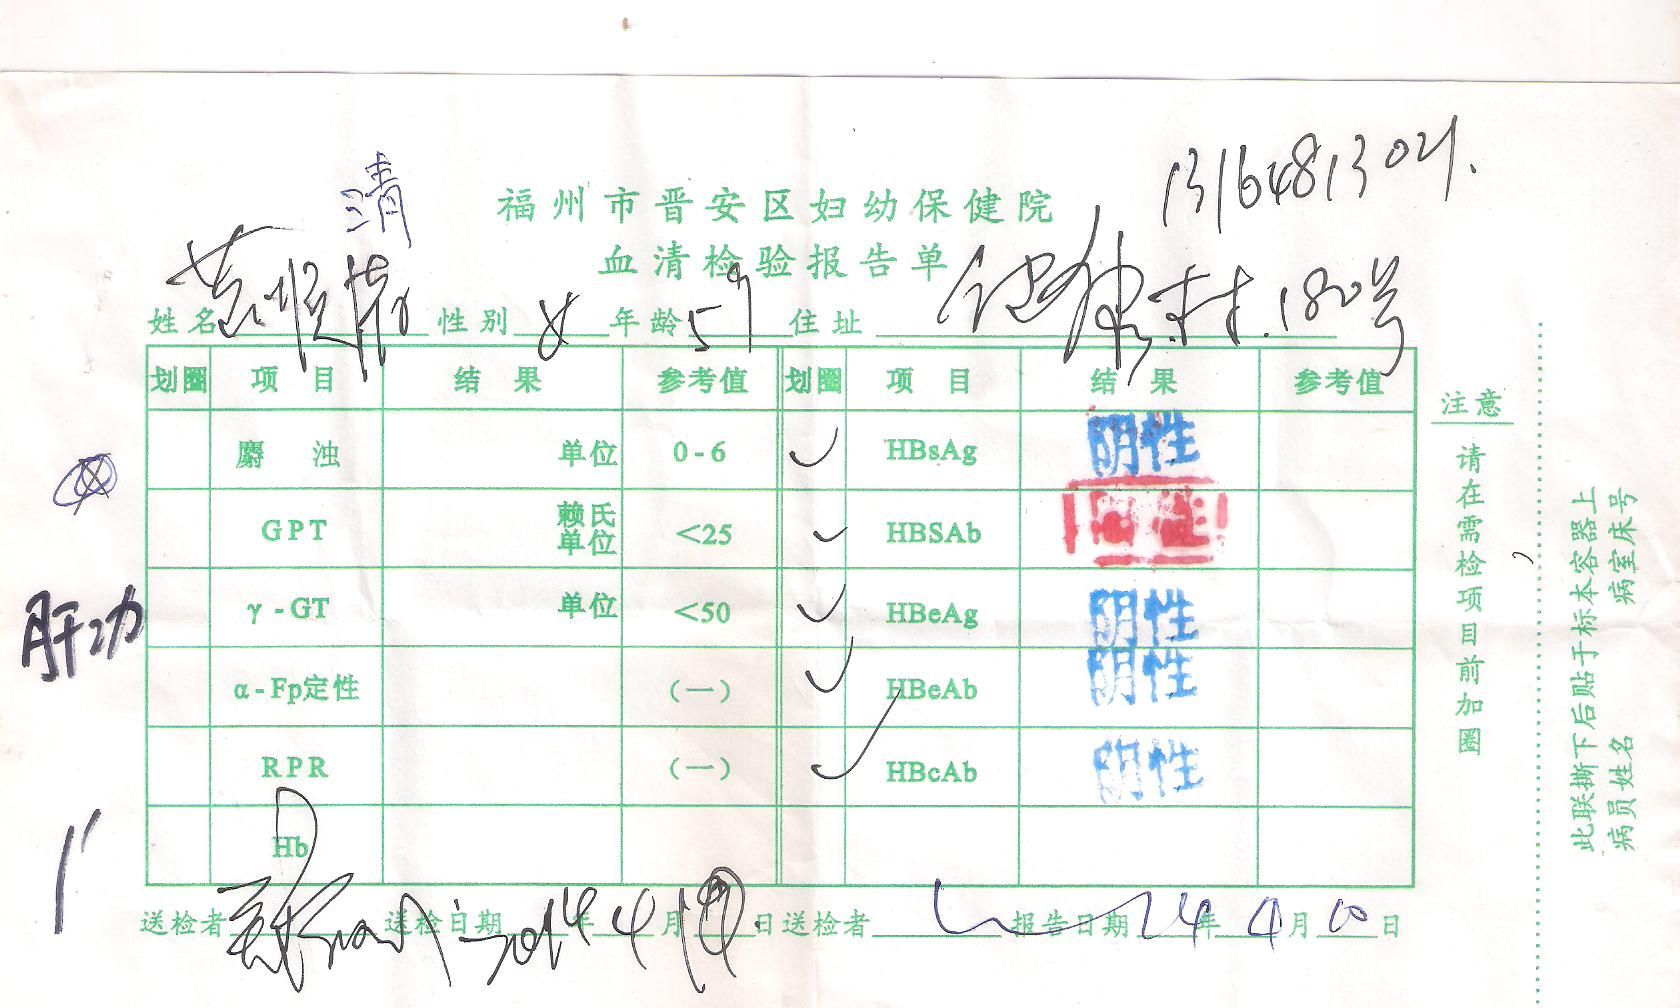 13164813021.
清
福州市晋安区妇幼保健院
血清检验报告单
姓名 黄 性别 女 年龄 59 住址 村.180号
划圈 项目 结果 参考值 划圈 项目 结果 参考值
麝浊 单位 0-6 HBsAg 阴性
GPT 赖氏单位 <25 HBSAb 阳性
γ-GT 单位 <50 HBeAg 阴性
α-Fp定性 (一) HBeAb 阴性
RPR (一) HBcAb 阴性
Hb
送检者 送检日期 2014年4月 日 送检者 报告日期 14年4月10日
肝功
注意
请在需检项目前加圈
此联撕下后贴于标本容器上
病员姓名 病室床号